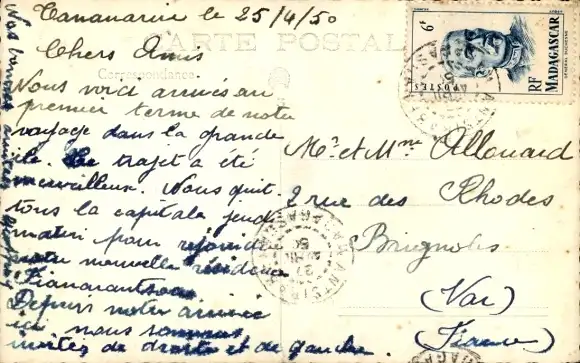 Tananarive le 25/4/50
CARTE POSTALE
Correspondance
Chers Amis
Nous voici arrivés au
premier terme de notre
voyage dans la grande
île. Le trajet a été
merveilleux. Nous quit-
tons la capitale jeudi
matin pour rejoindre
notre nouvelle résidence
Fianarantsoa
Depuis notre arrivée
ici nous sommes
invités de droite et de gauche.
Nos bonnes amitiés
Mr et Mme Allouard
2 rue des Rhodes
Brignoles
(Var)
(France)
6F
POSTES
RF
MADAGASCAR
GÉNÉRAL DUCHESNE
27
50